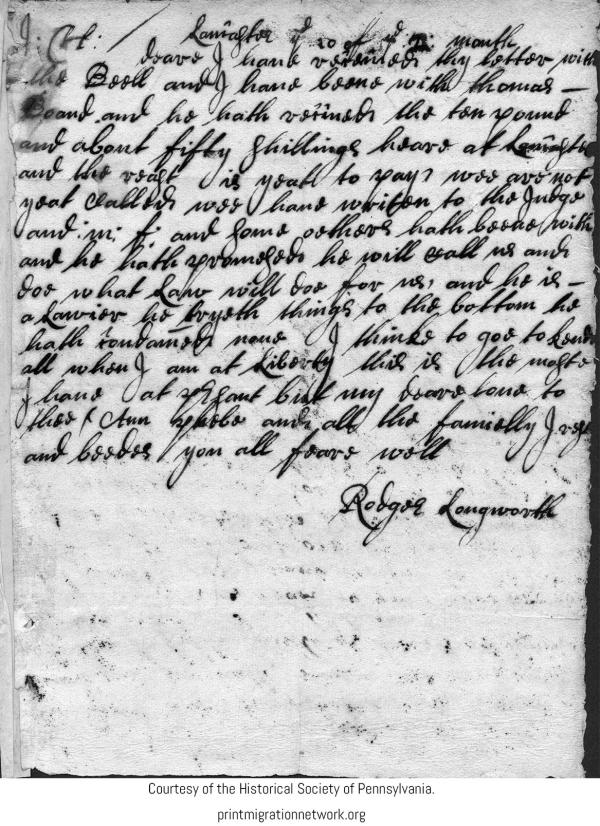 J: H:
Lancaster yᵉ 20 of yᵉ month
deare I have received thy letter with
the Beell and I have beene with thomas –
Boand and he hath received the ten pound
and about fifty Shillings heare at Lancaster
and the reast is yeat to pay: wee are not
yeat Called wee have writen to the Judge
and: m: f: and some oethers hath beene with
and he hath promesed he will Call us and
doe what Law will doe for us, and he is –
a Lawier he tryeth things to the bottom he
hath Condamed none I thinke to goe to
all when I am at Liberty this is the moste
I have at present but my deare love to
thee & Ann phebe and all the familly I rest
and beedes you all feare well
Rodger Longworth
Courtesy of the Historical Society of Pennsylvania.
printmigrationnetwork.org